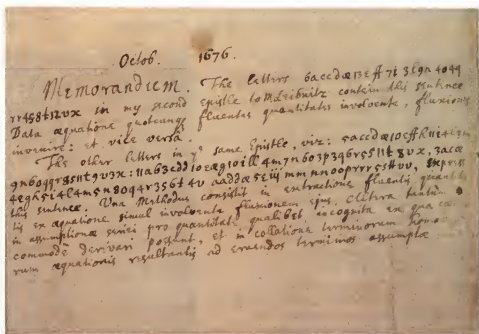 Octob. 1676.
Memorandum. The letters 6accdæ13eff7i3l9n4o4q
rr4s8t12vx in my second Epistle to M. Leibnitz contein this sentence
Data æquatione quotcunqꝫ fluentes quantitates involvente, fluxiones
invenire: et vice versâ.
The other letters in yᵉ same Epistle, viz: 5accdæ10effh
9n6oqqr8s11t9v3x: 11ab3cdd10eæg10ill4m7n6o3p3q6r5s11t8vx, 3acæ
4egh5i4l4m5n8oq4r3s6t4v, aaddæ iijmmnnooprrr5sttuv, express
this sentence. Una Methodus consistit in extractione fluentis quantita
tis ex æquatione simul involvente fluxionem ejus. Altera tantùm
in assumptione seriei pro quantitate qualibet incognita ex qua cætera
commodè derivari possunt, et in collatione terminorum homo
rum æquationis resultantis ad eruendos terminos assumptæ